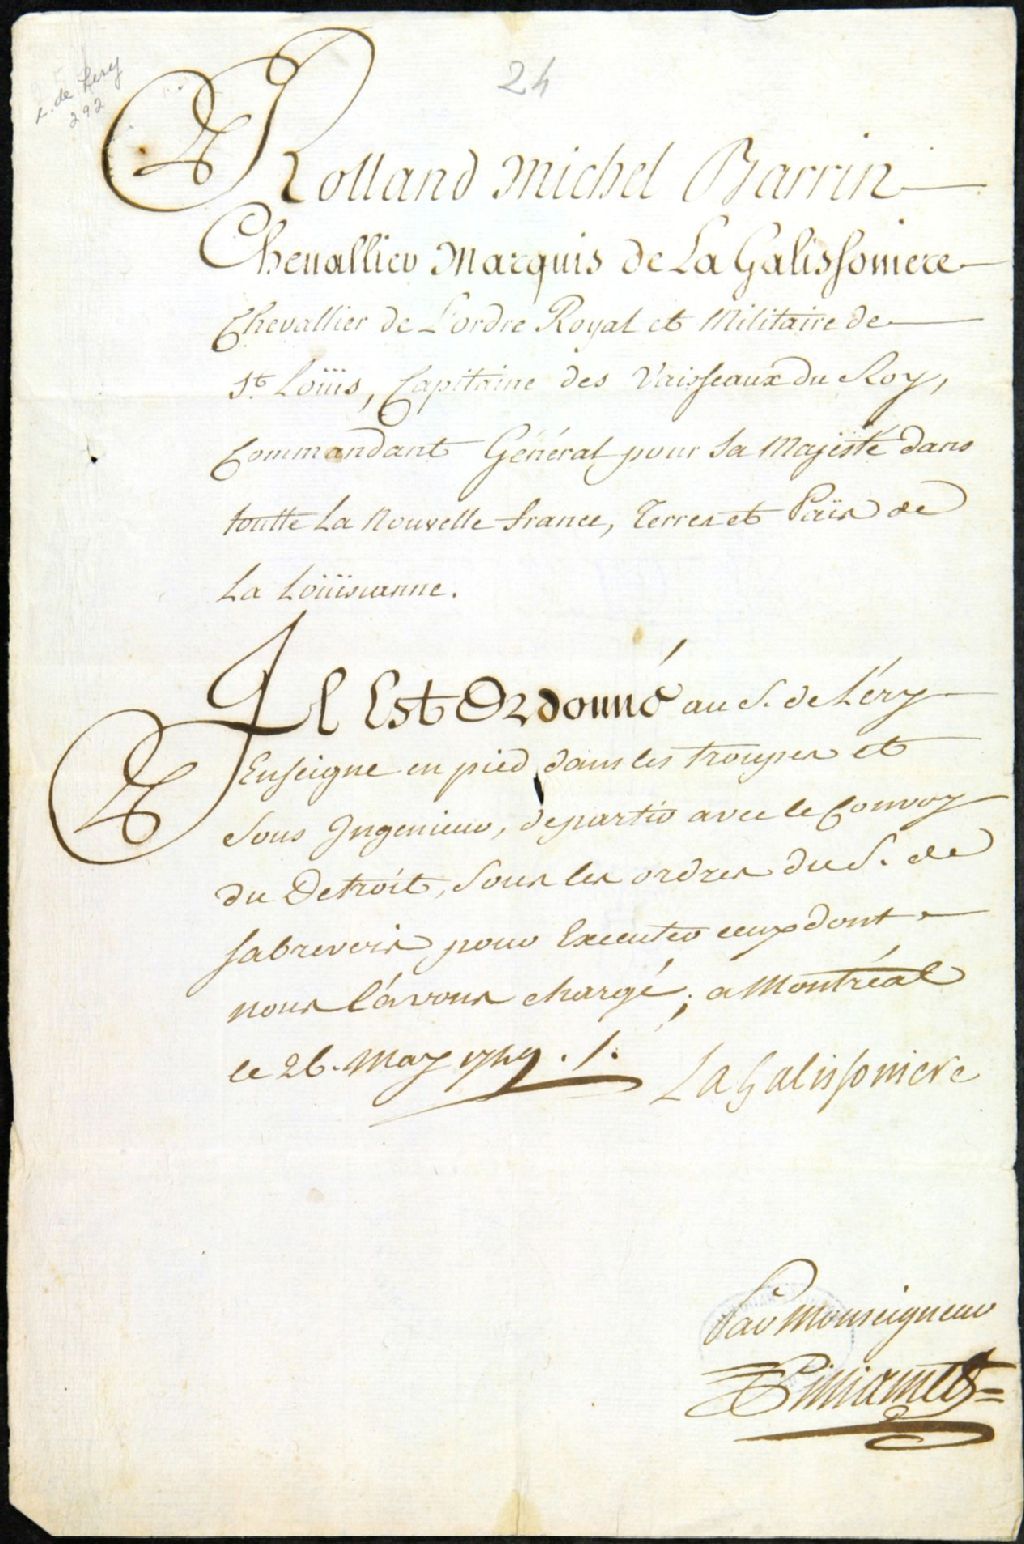 L. de Lery
292
24
Rolland Michel Barrin
Chevallier Marquis de La Galissoniere
Chevallier de L'ordre Royal et Militaire de
St. Loüis, Capitaine des Vaisseaux du Roy,
Commandant Général pour Sa Majesté dans
toutte La Nouvelle france, Terres et Païs de
La Loüisianne.
Il Est Ordonné au S. de Léry
Enseigne en pied dans les troupes et
Sous Ingenieur, de partir avec le Convoy
du Detroit, sous les ordres du S. de
Sabrevois pour Executer ceux dont
nous l'avons chargé; a Montréal
le 26. May 1749 ./.
LaGalissoniere
Par Monseigneur